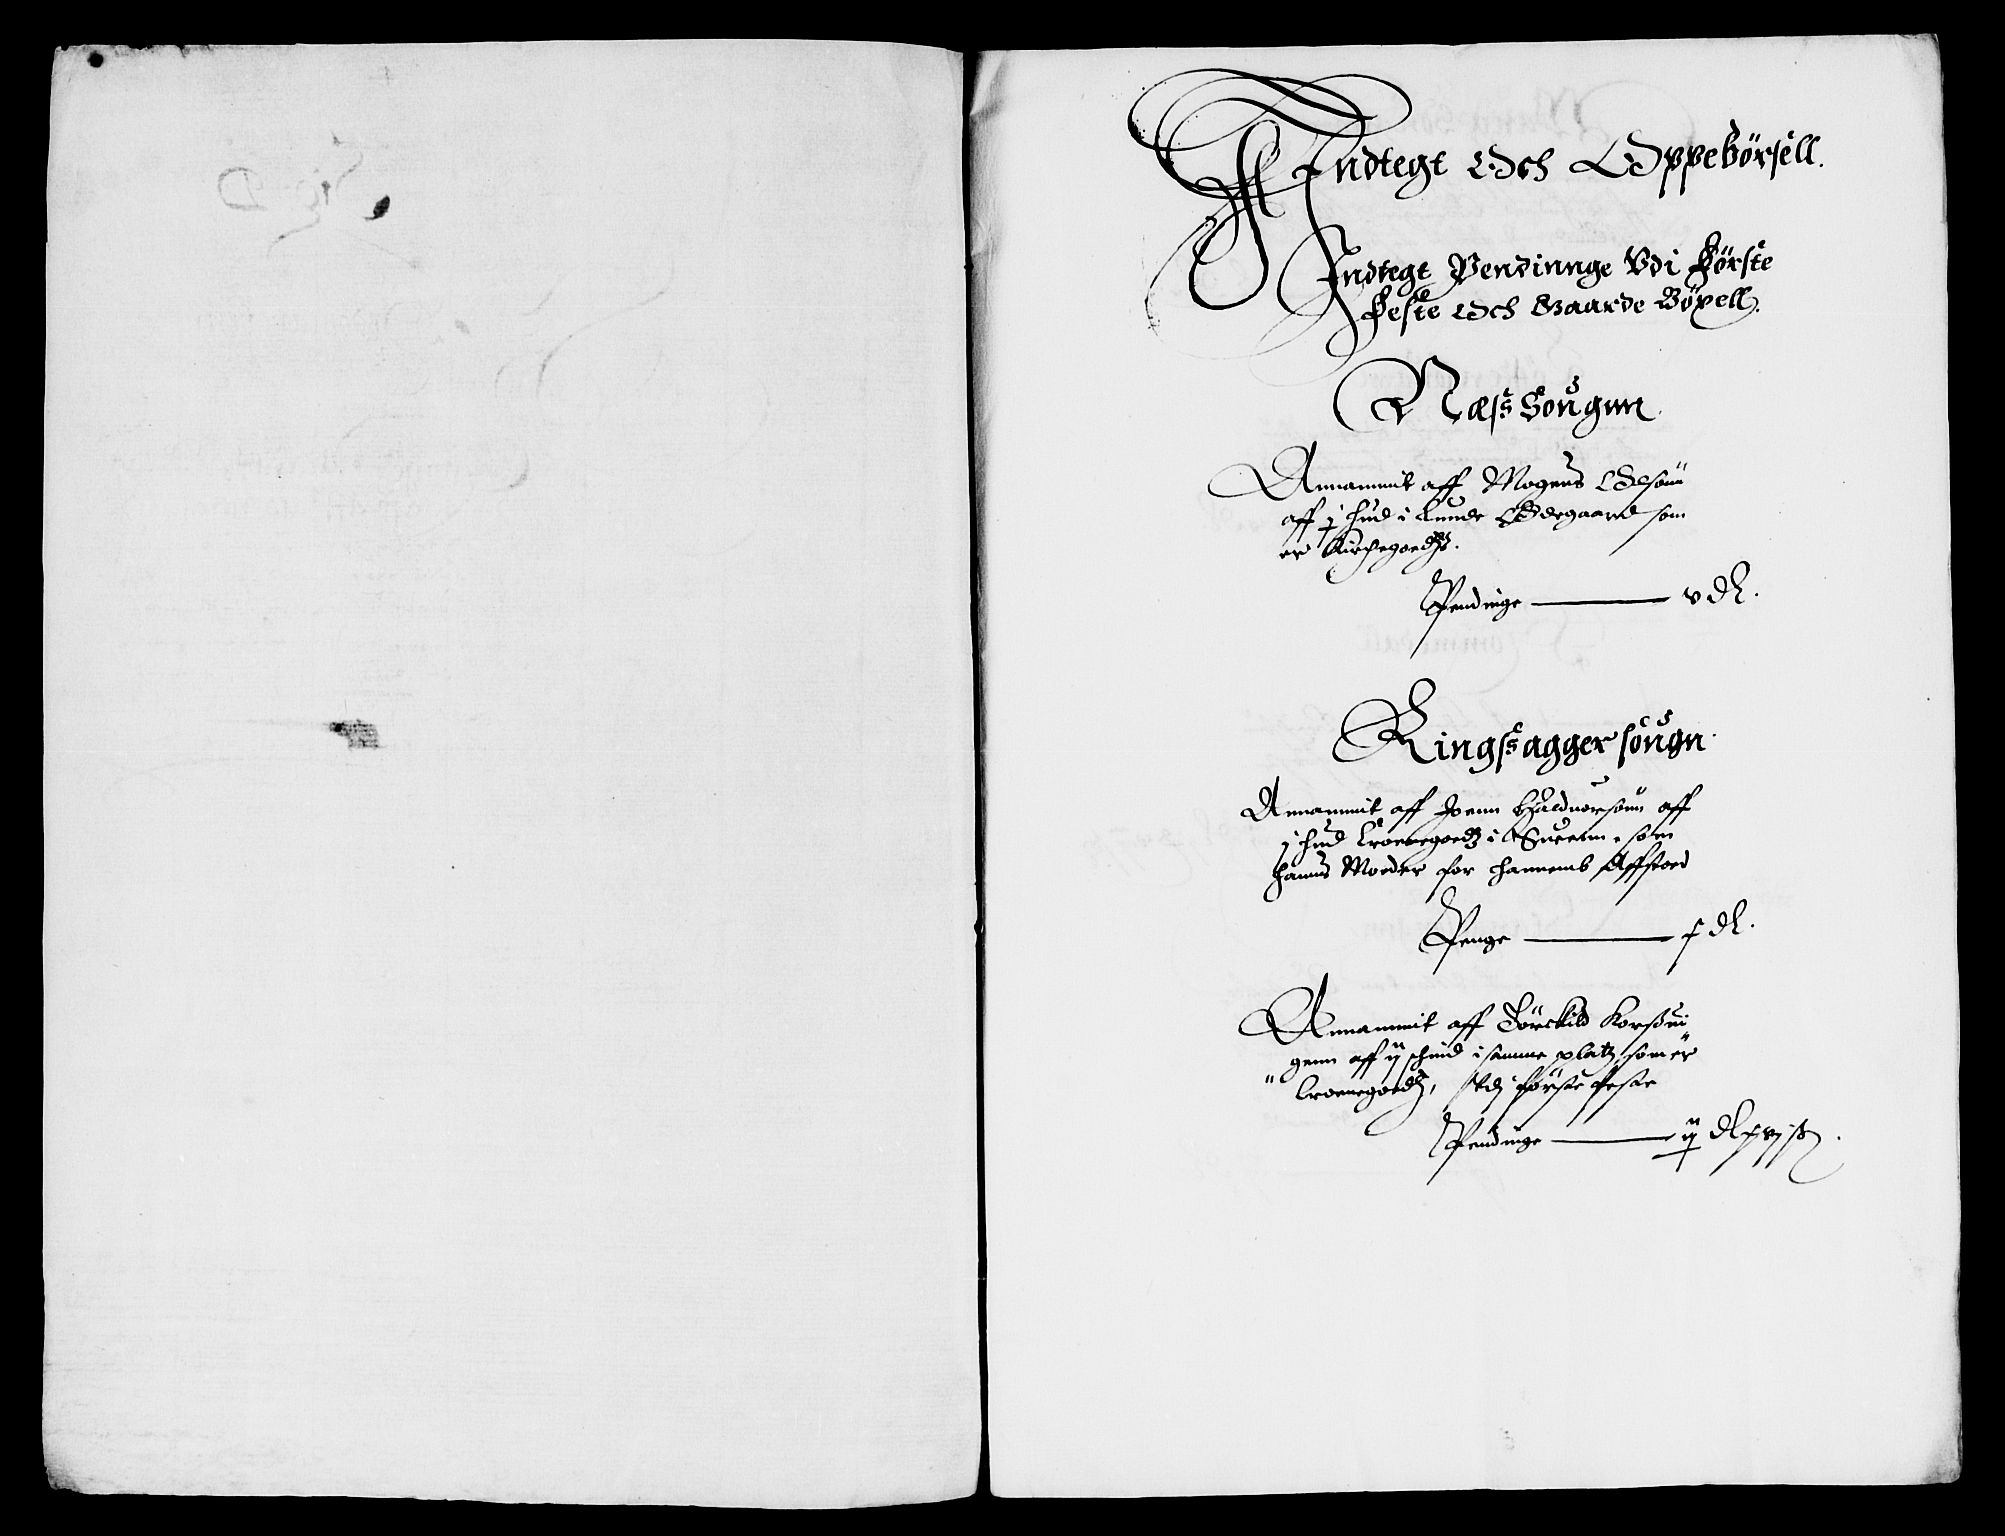 Indtegt Och Oppebörsell.
Indtegt Pendinnge Vdi Förste
Feste Och Gaarde Böxell.
Næss Sougnn
Annammit aff Mogens Olsönn
aff j hud i Lunde Ödegaard som
er Kirchegoedz.
Pendinge — v dl.
Ringssagger sougn.
Annammit aff Joenn Halduorsönn aff
j hud Croenegoedz i som
hanns Moeder for hannemb Affstoed
Penge — j dl.
Annammit aff Törckild Korssuei
genn aff ij schind i samme platz som er
Croenegoedz, Vdj förste feste
Pendinge — ij dl